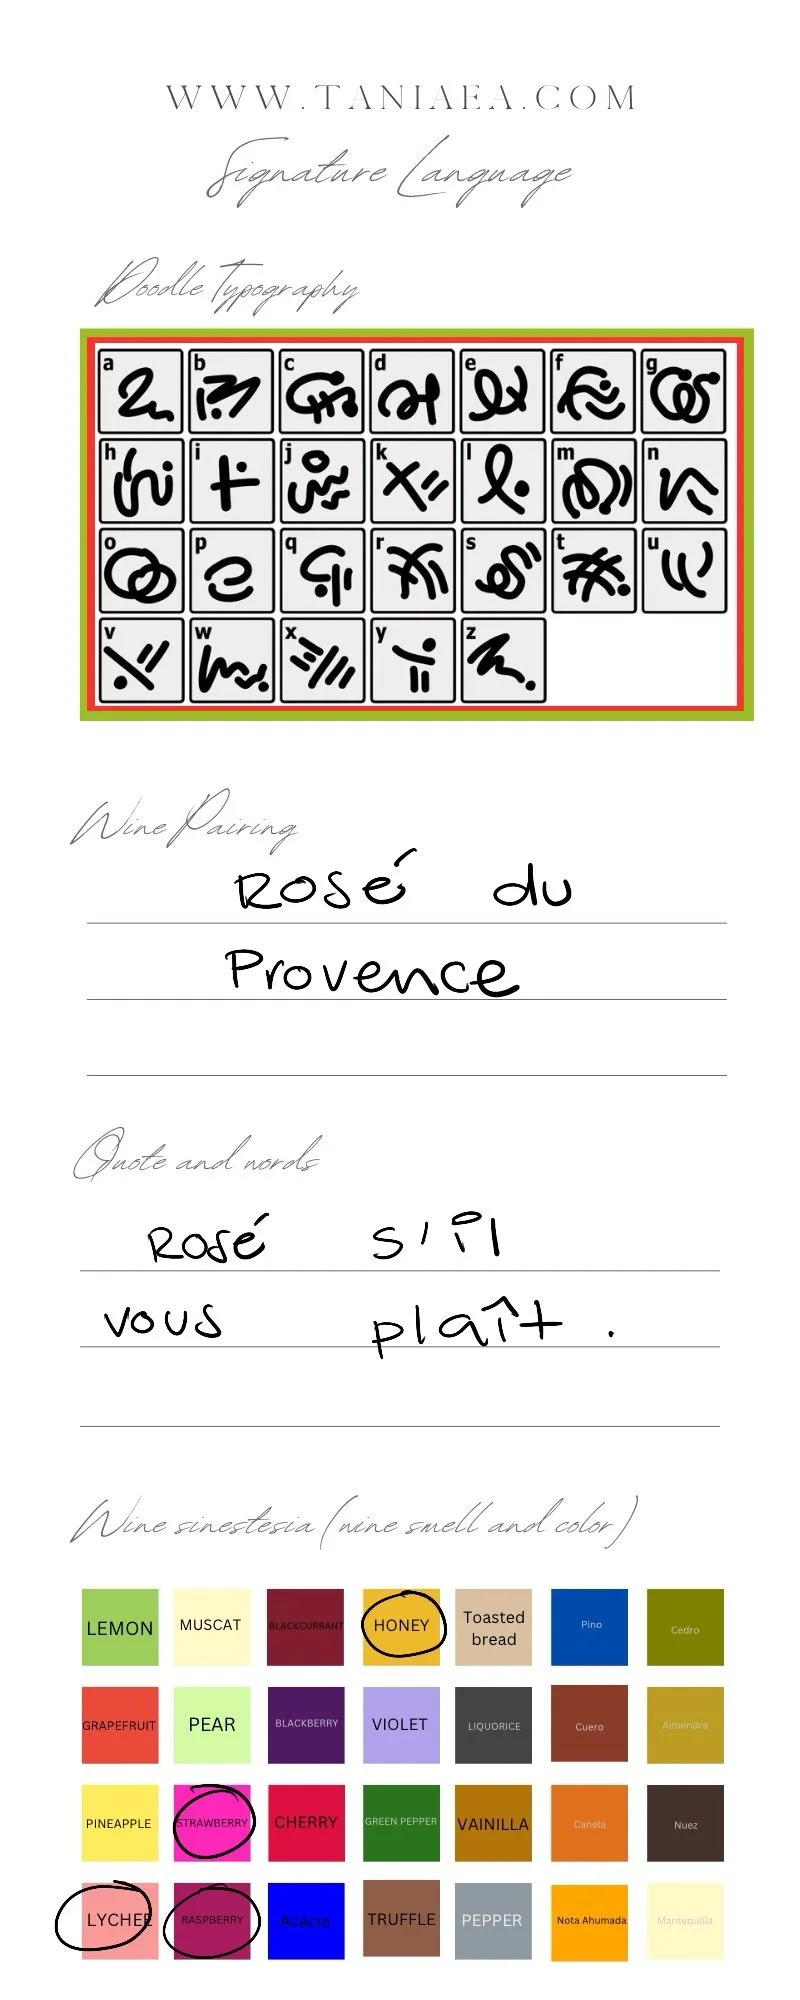 WWW.TANIAEA.COM
Signature Language
Doodle Typography
a b c d e f g
h i j k l m n
o p q r s t u
v w x y z
Wine Pairing
Rosé du
Provence
Quote and words
Rosé s'il
vous plaît.
Wine sinestesia (wine smell and color)
LEMON MUSCAT BLACKCURRANT HONEY Toasted bread Pino Cedro
GRAPEFRUIT PEAR BLACKBERRY VIOLET LIQUORICE Cuero Almendra
PINEAPPLE STRAWBERRY CHERRY GREEN PEPPER VAINILLA Canela Nuez
LYCHEE RASPBERRY Acacia TRUFFLE PEPPER Nota Ahumada Mantequilla